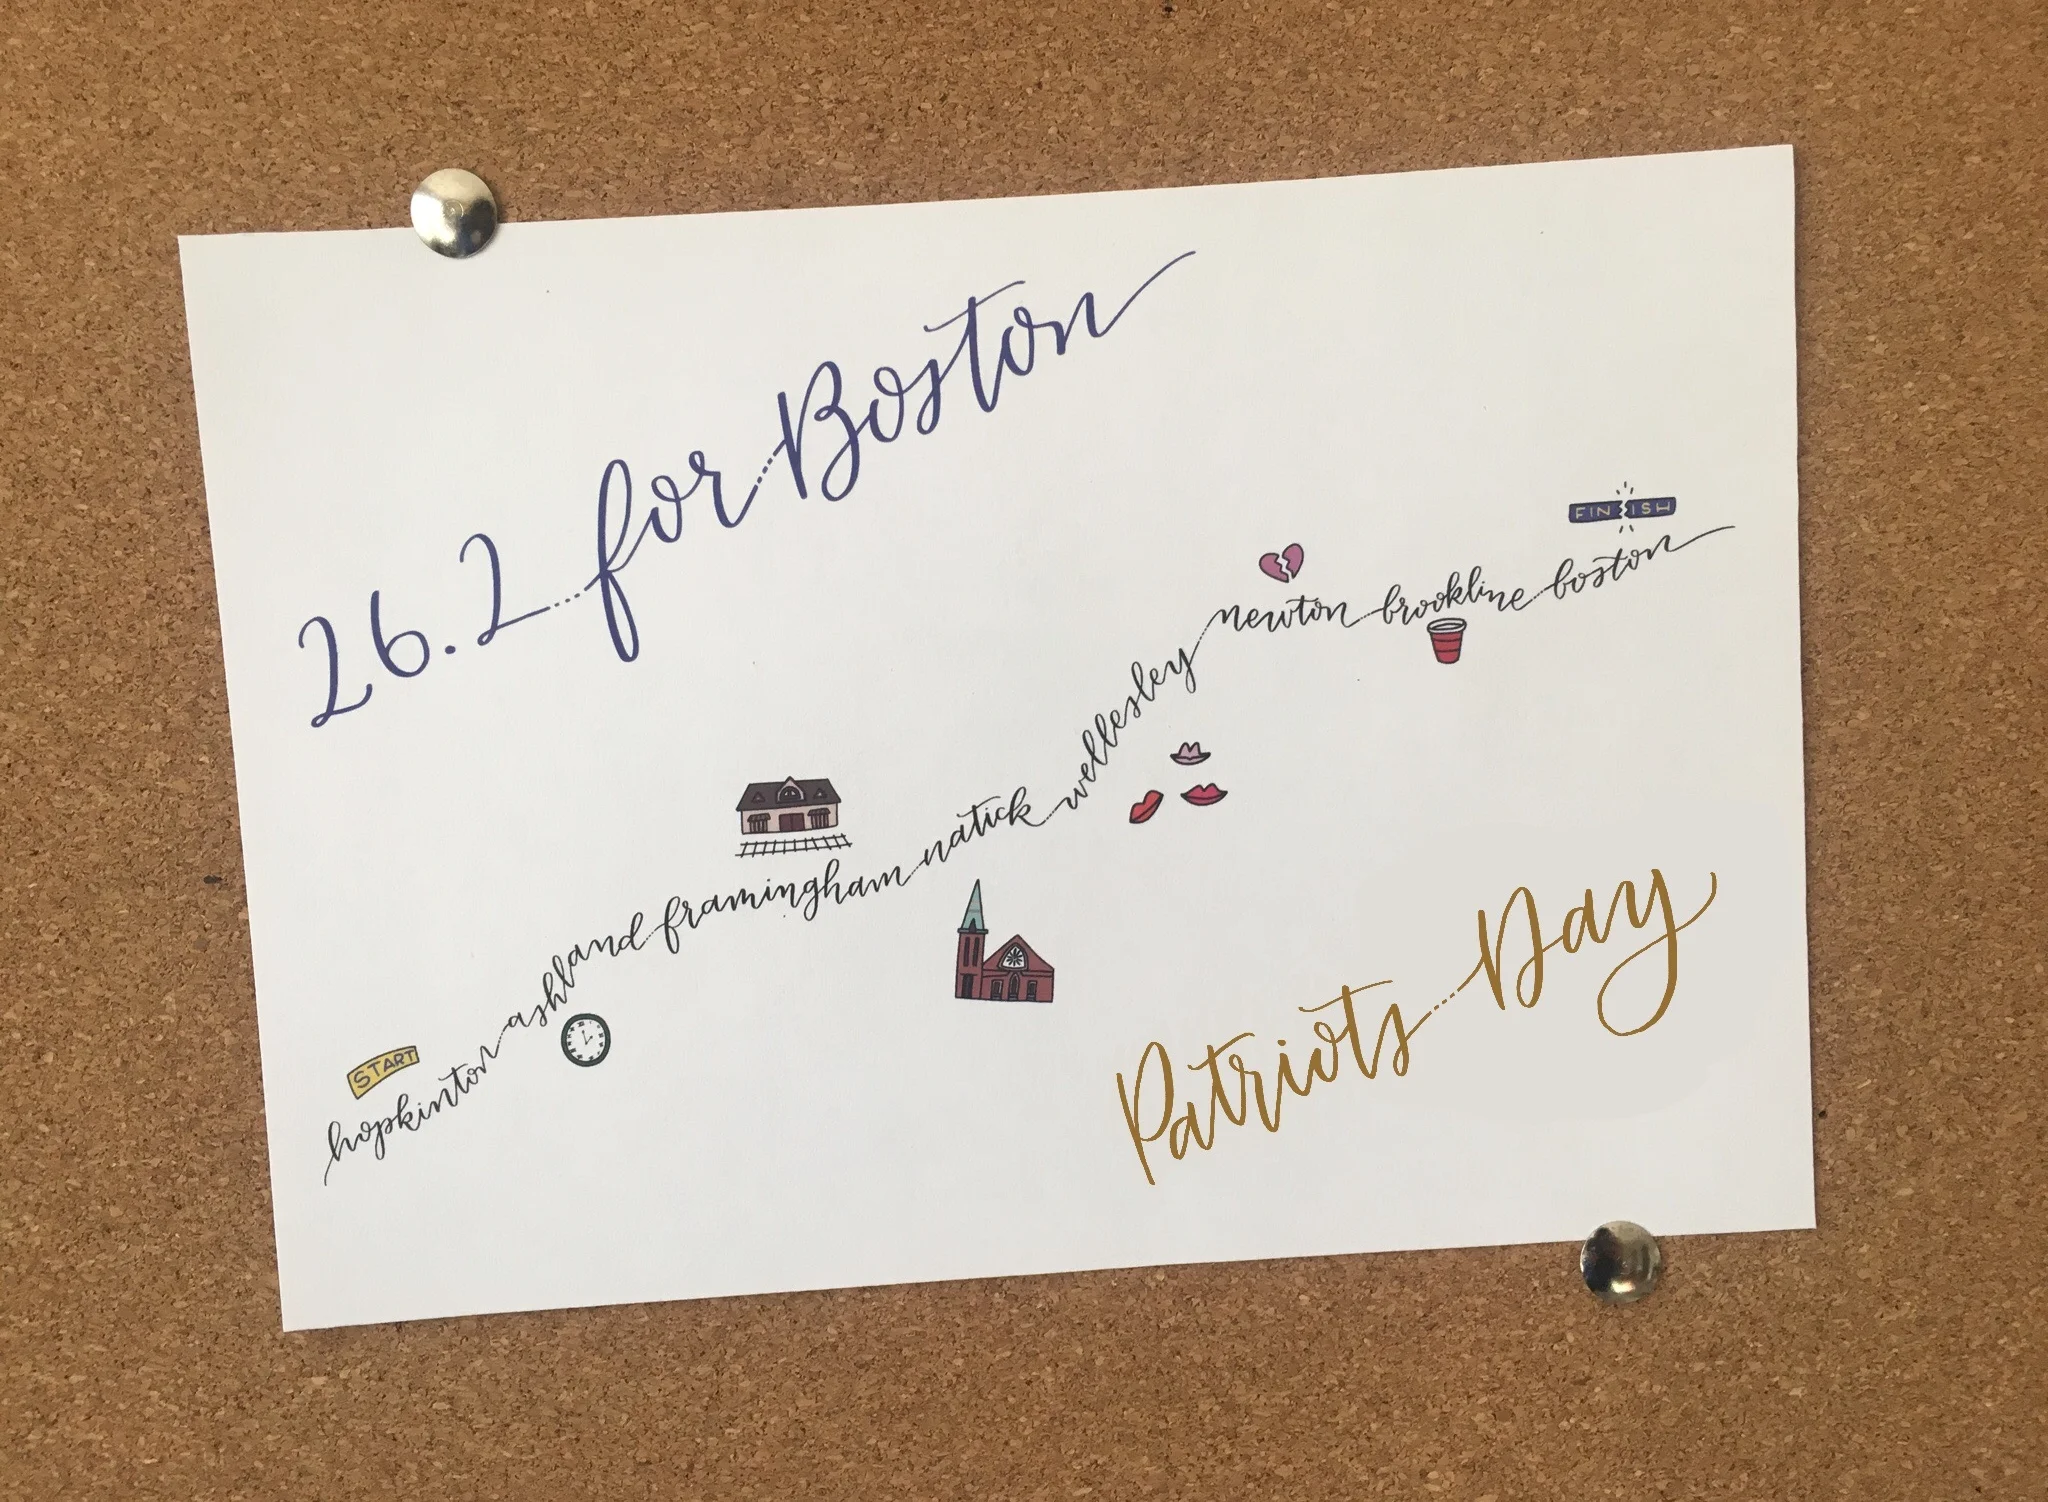 26.2 for Boston
FINISH
START
hopkinton ashland framingham natick wellesley newton brookline boston
Patriots Day